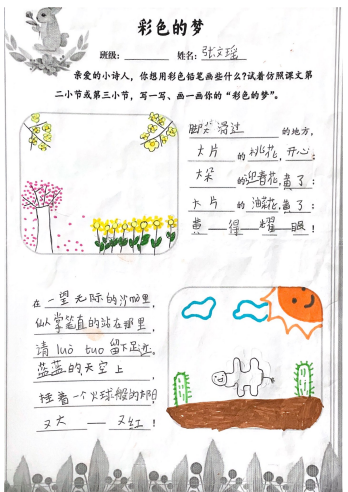 彩色的梦
班级: 姓名: 张文瑶
亲爱的小诗人,你想用彩色铅笔画些什么?试着仿照课文第
二小节或第三小节,写一写、画一画你的“彩色的梦”。
脚尖滑过的地方,
大片的桃花,开心;
大朵的迎春花,黄了;
大片的油菜花,黄了;
黄——得——耀——眼!
在一望无际的沙哈里,
仙人掌笔直的站在那里,
请 luò tuo 留下足迹,
蓝蓝的天空上
挂着一个火球般的
又大——又红!